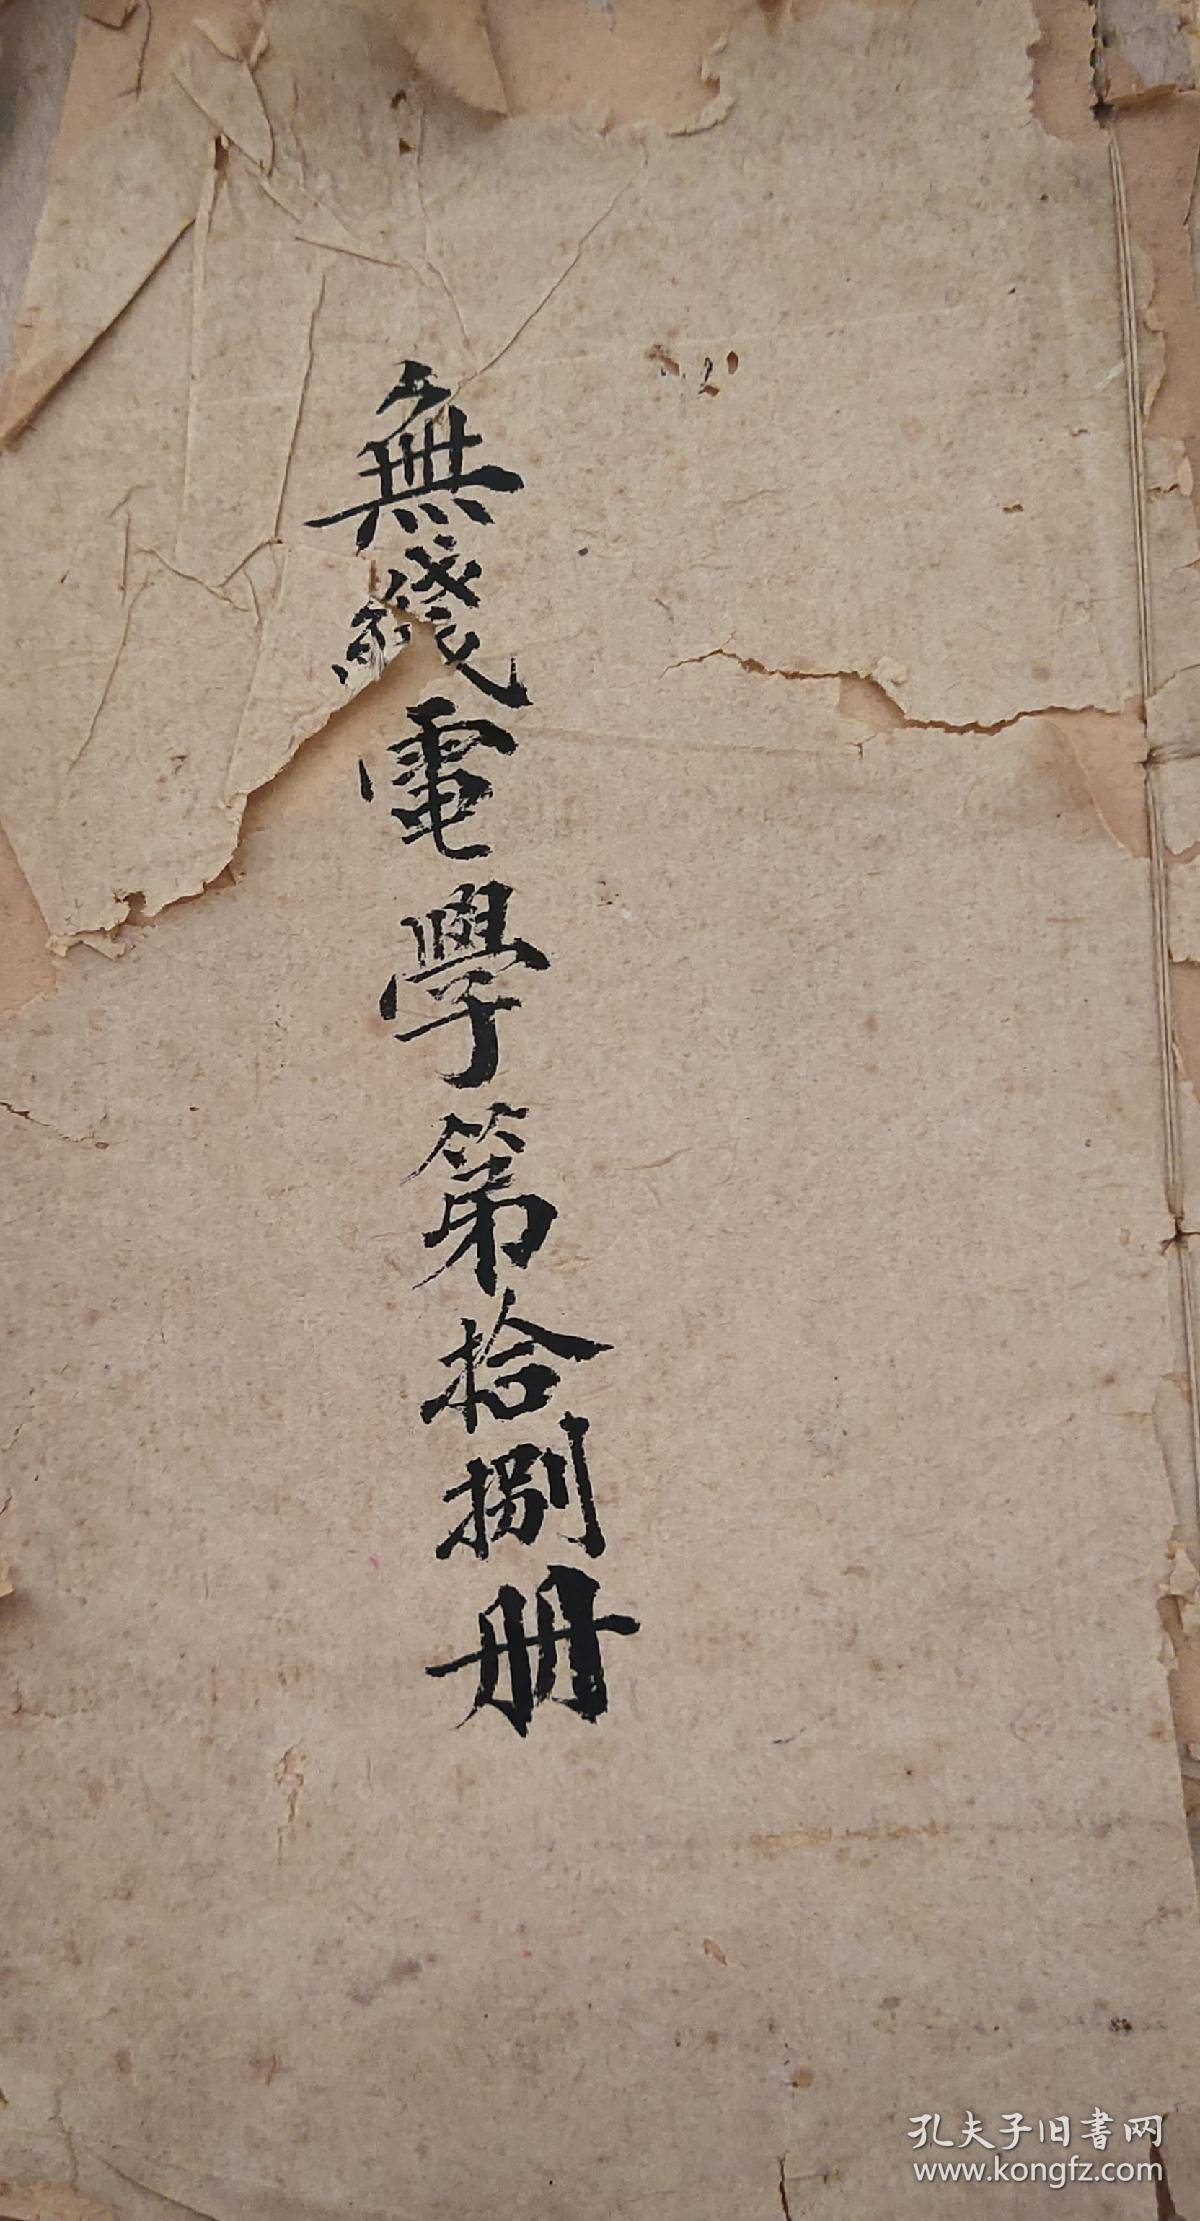 無綫電學第拾捌册
孔夫子旧書网
www.kongfz.com